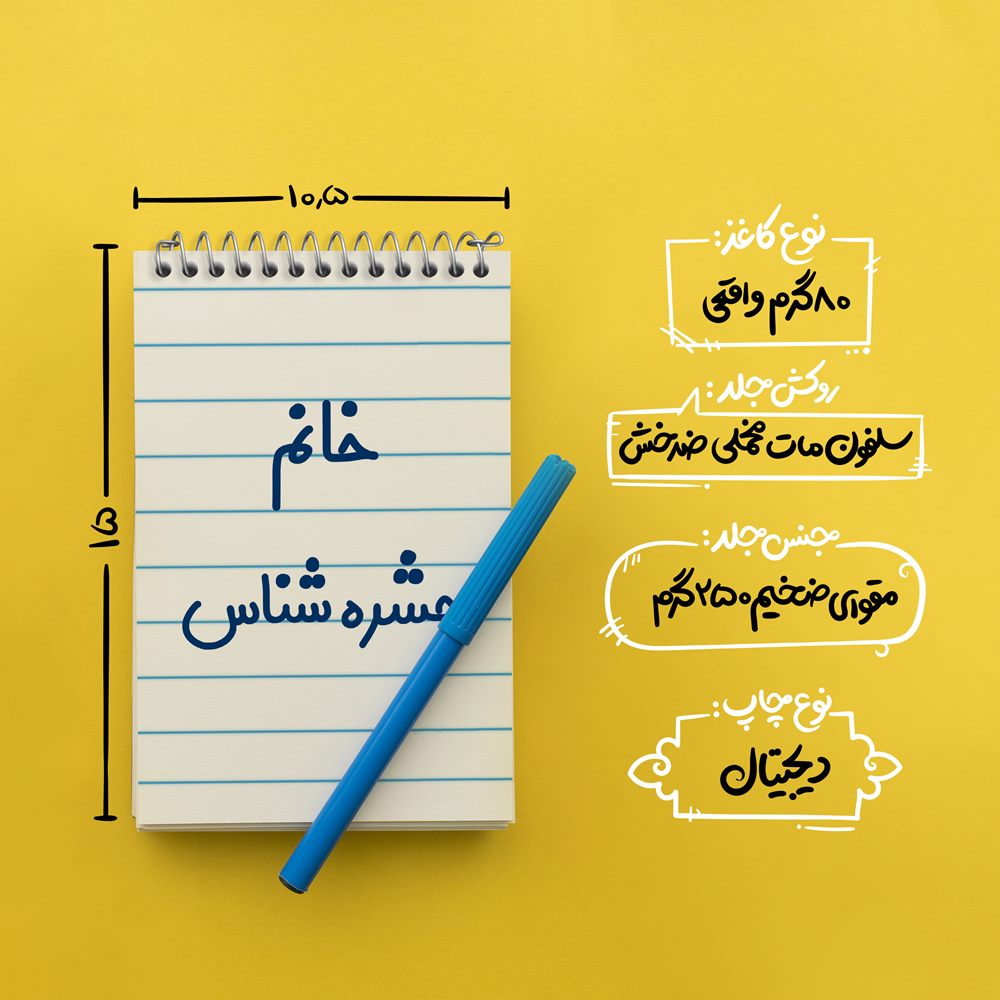 ۱۰٫۵
۱۵
خانم
حشره شناس
نوع کاغذ:
۸۰گرم واقعی
روکش جلد:
سلفون مات مخملی ضدخش
جنس جلد:
مقوای ضخیم ۲۵۰گرم
نوع چاپ:
دیجیتال